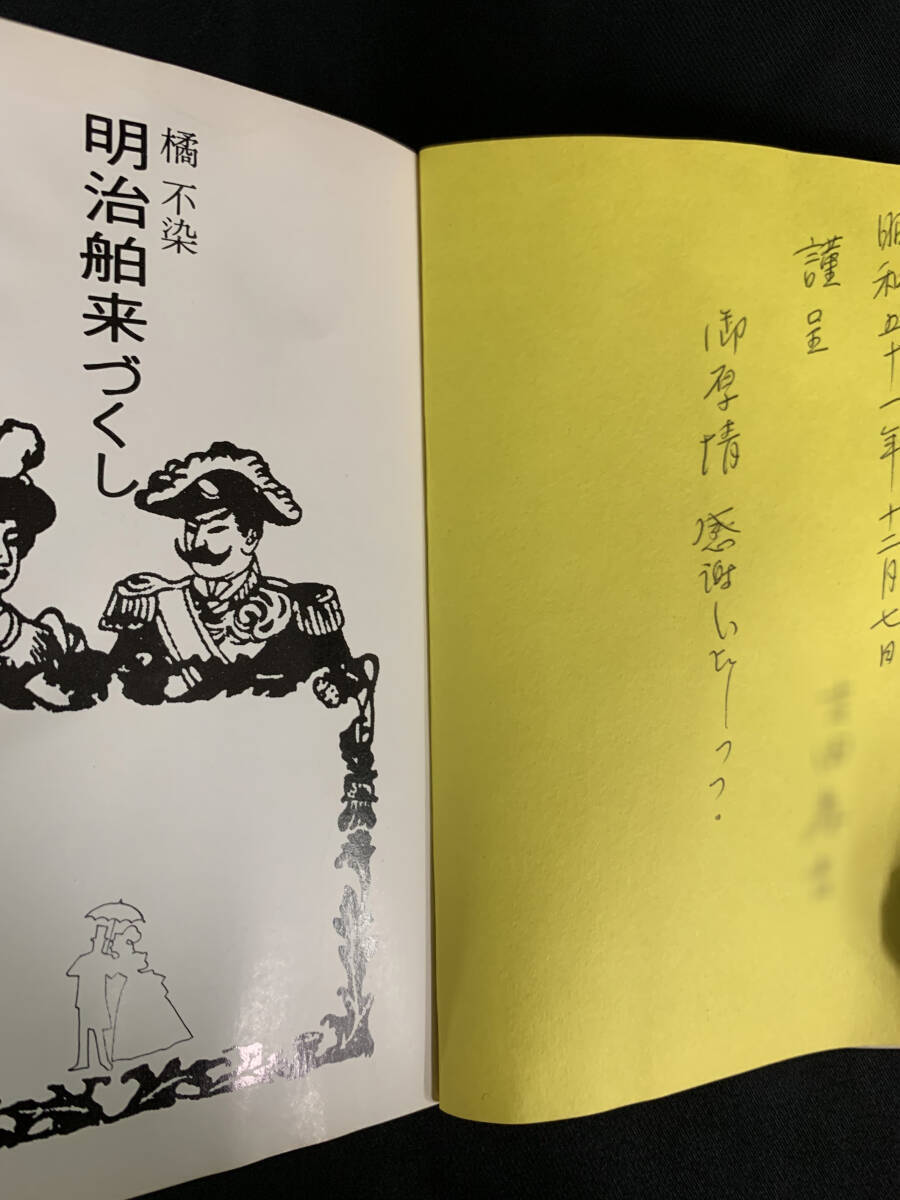 昭和五十一年十二月七日
謹呈
御厚情感謝しいたしつつ.
橘 不染
明治舶来づくし